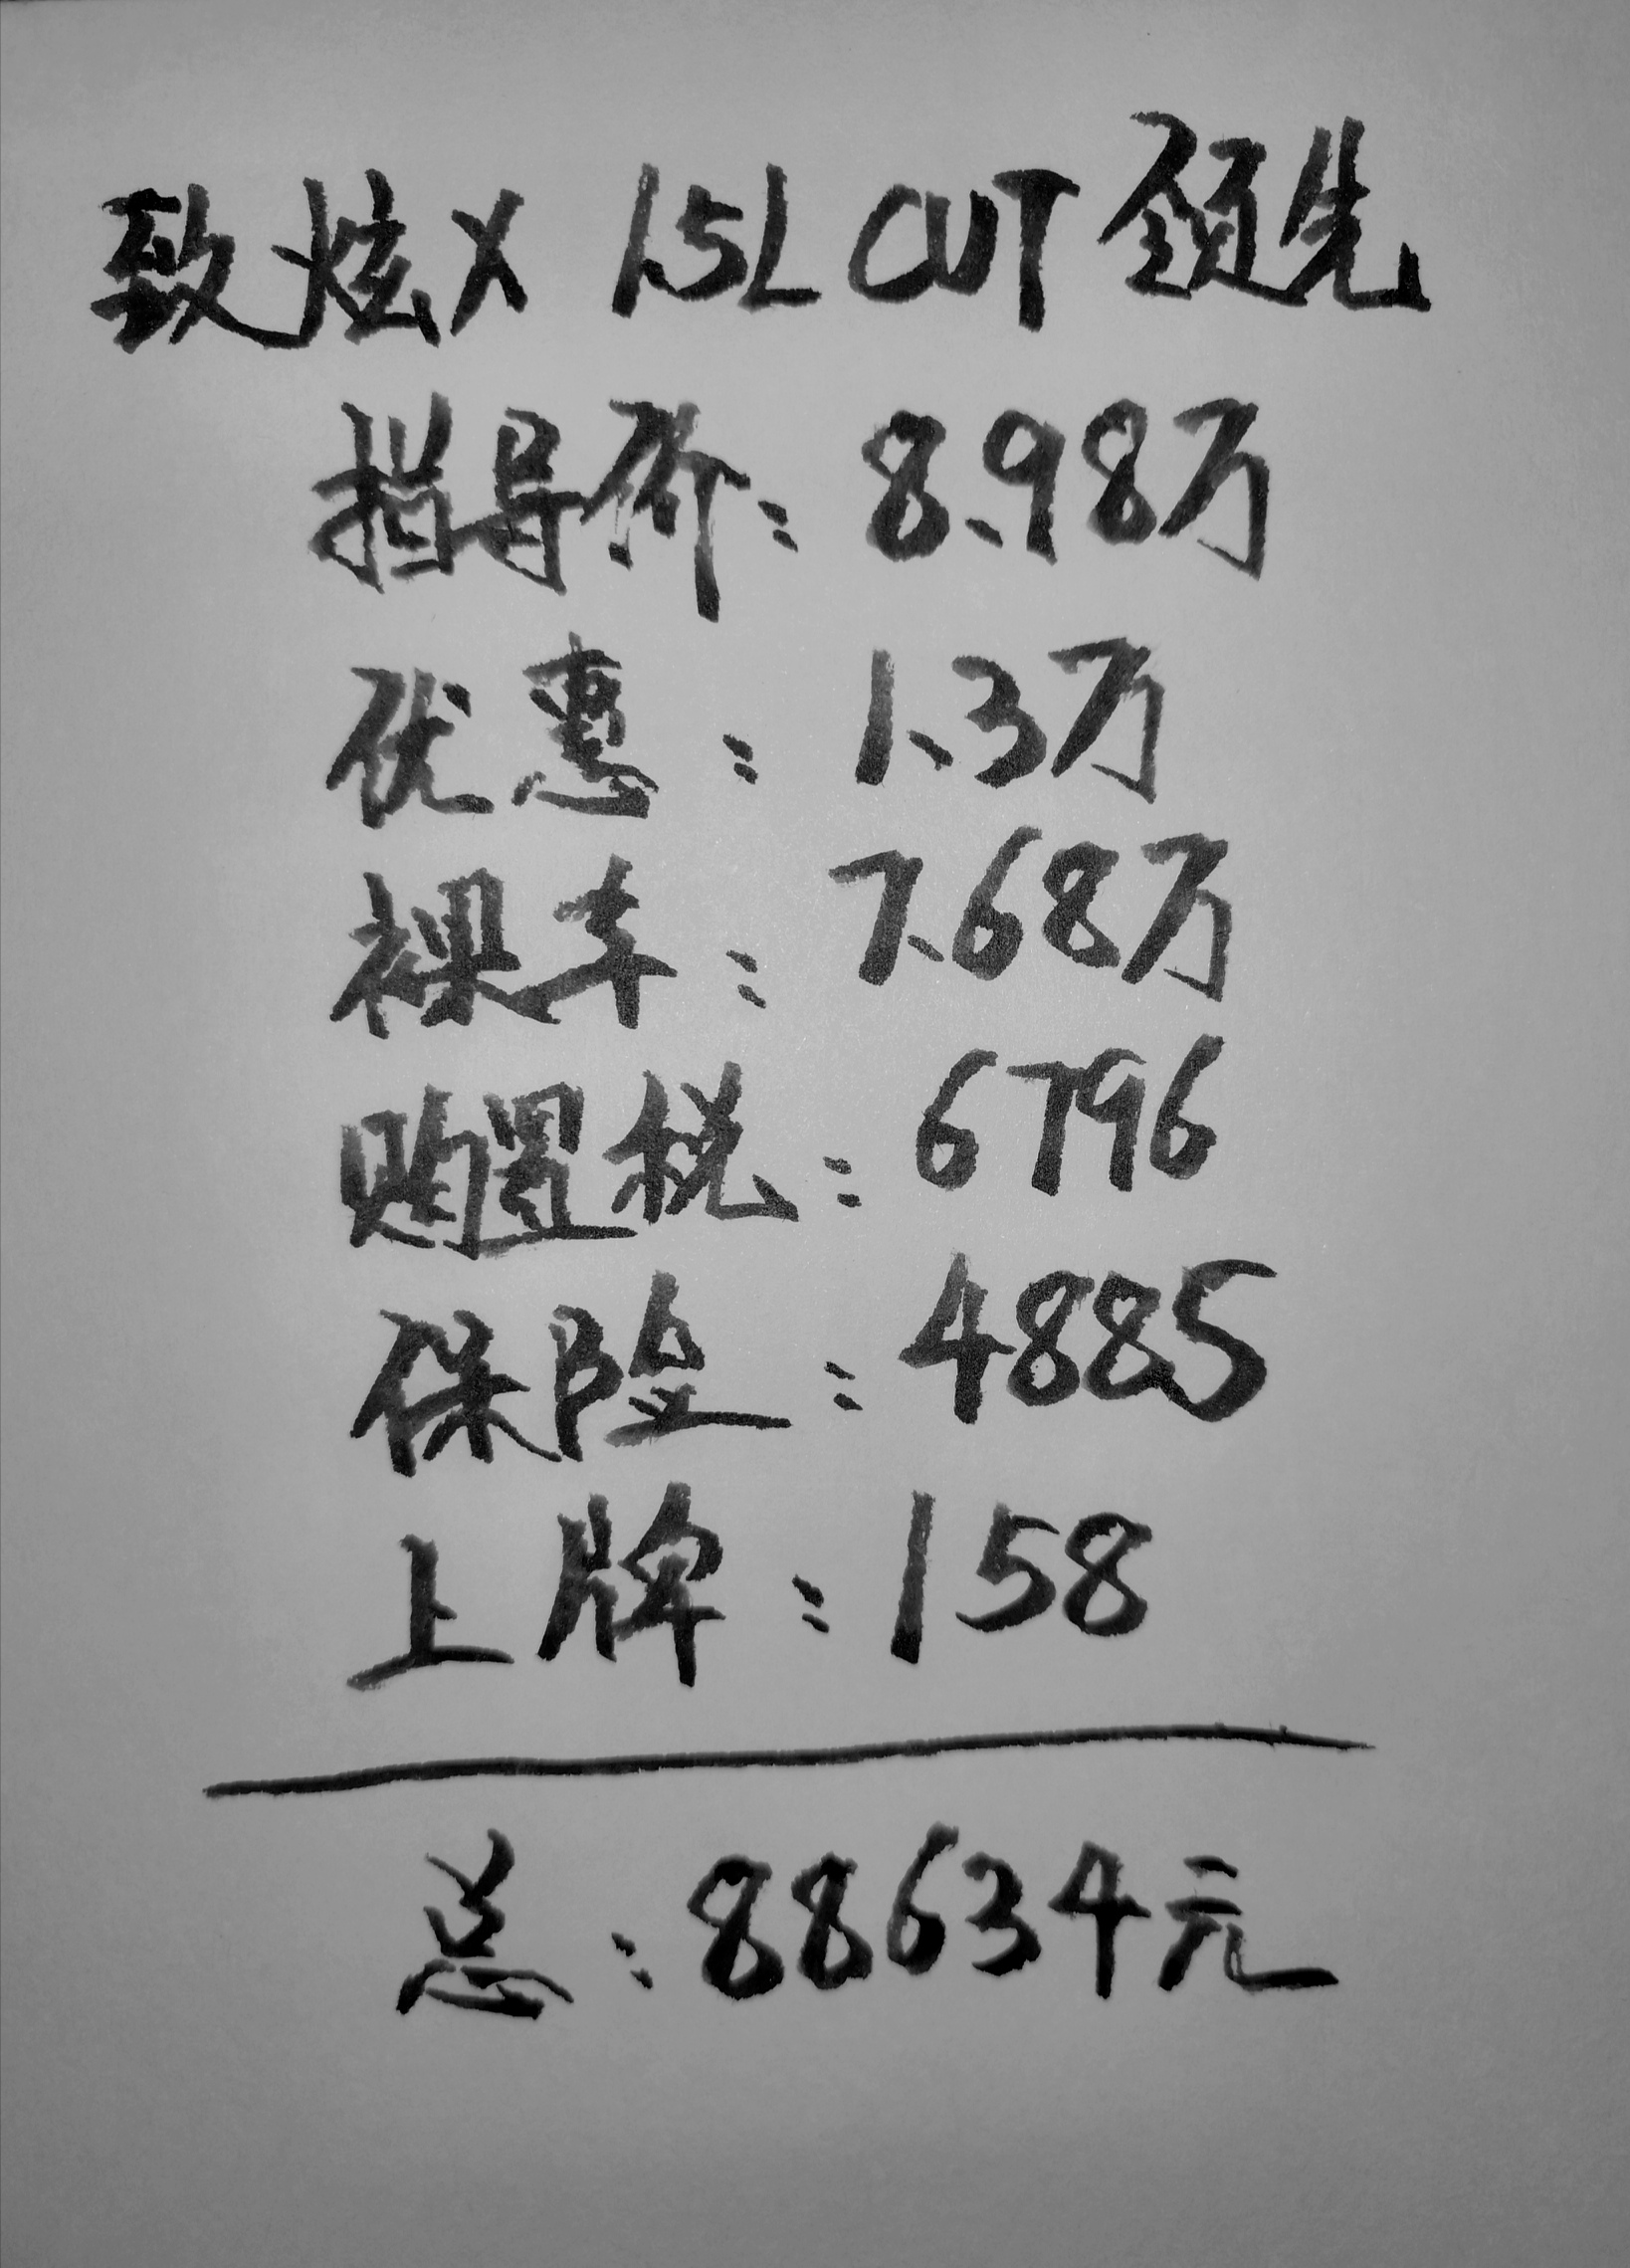 致炫X 1.5L CUT 领先
指导价：8.98万
优惠：1.3万
裸车：7.68万
购置税：6796
保险：4885
上牌：158
总：88634元